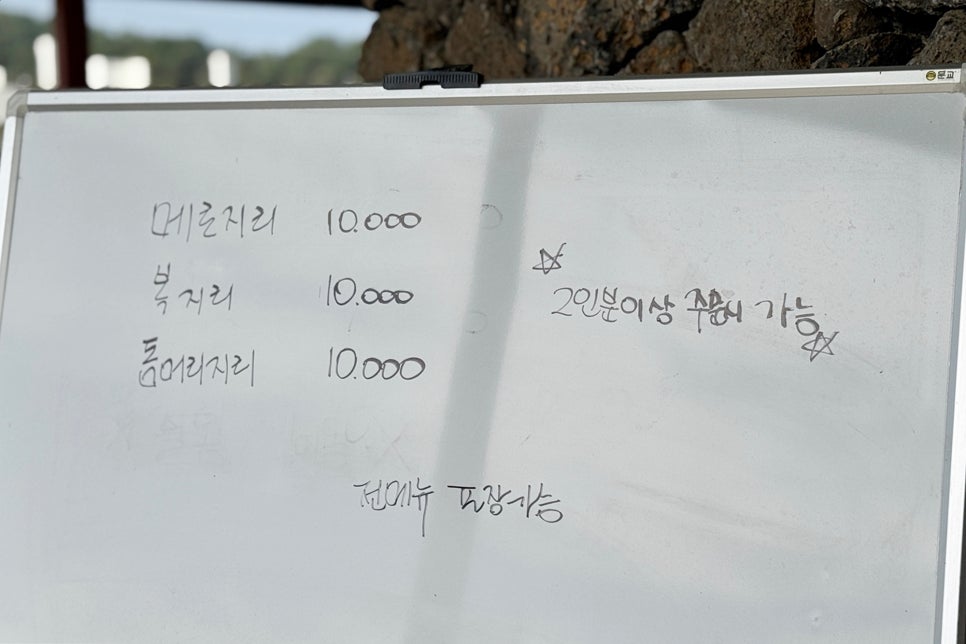 문교
메로지리 10.000
복지리 10.000
톰머리지리 10.000
☆ 2인분이상 주문시 가능 ☆
전메뉴 포장가능